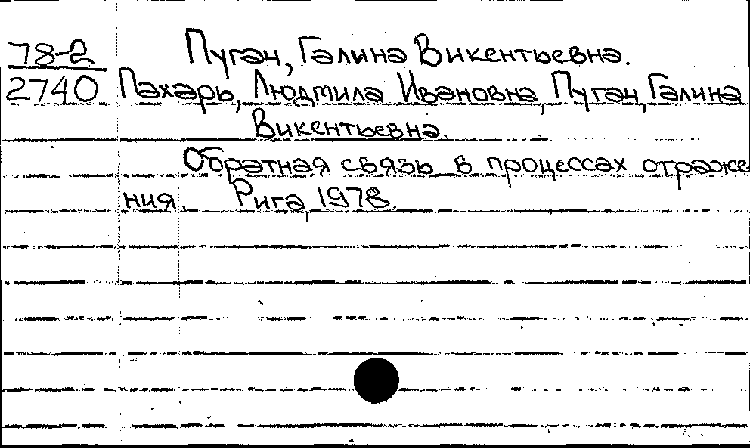 78-2 Пугач, Галина Викентьевна.
2740 Пахарь, Людмила Ивановна, Пугач, Галина
Викентьевна.
Обратная связь в процессах отраже
ния. Рига, 1978.